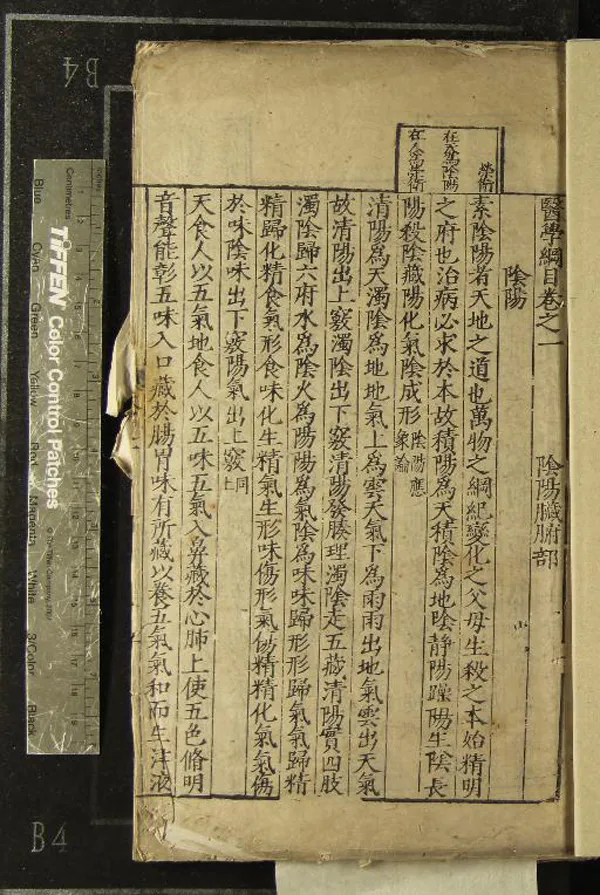 醫學綱目卷之一 陰陽臟腑部
陰陽
榮衛
在天為陰陽
在人為榮衛
素陰陽者天地之道也萬物之綱紀變化之父母生殺之本始精明
之府也治病必求於本故積陽為天積陰為地陰靜陽躁陽生陰長
陽殺陰藏陽化氣陰成形 陰陽應
象論
清陽為天濁陰為地地氣上為雲天氣下為雨雨出地氣雲出天氣
故清陽出上竅濁陰出下竅清陽發腠理濁陰走五藏清陽實四肢
濁陰歸六府水為陰火為陽陽為氣陰為味味歸形形歸氣氣歸精
精歸化精食氣形食味化生精氣生形味傷形氣傷精精化氣氣傷
於味陰味出下竅陽氣出上竅 同
上
天食人以五氣地食人以五味五氣入鼻藏於心肺上使五色脩明
音聲能彰五味入口藏於腸胃味有所藏以養五氣氣和而生津液
TIFFEN Color Control Patches
Centimetres
Blue Cyan Green Yellow Red Magenta White 3/Color Black
B4
B4